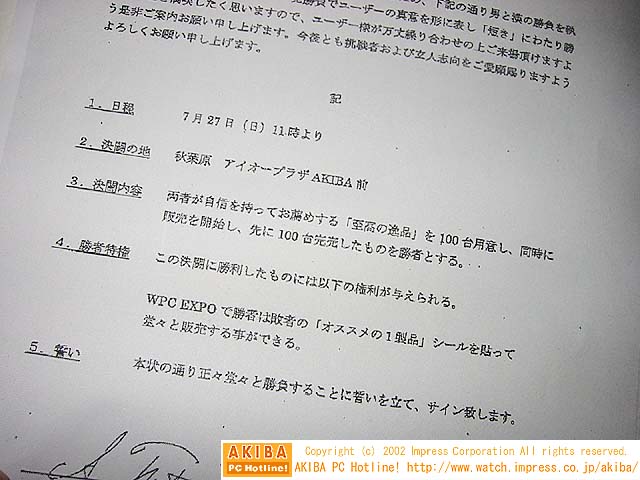 下記の通り男と漢の勝負を執
勝負でユーザーの真意を形に表し「短き」にわたり勝
したく思いますので、ユーザー様が万丈繰り合わせの上ご来場頂けますよ
う是非ご案内お願い申し上げます。今後とも挑戦者および玄人志向をご愛顧賜りますよう
よろしくお願い申し上げます。
記
1．日程
7月27日（日）11時より
2．決闘の地
秋葉原 アイオープラザAKIBA前
3．決闘内容
両者が自信を持ってお薦めする「至高の逸品」を100台用意し、同時に
販売を開始し、先に100台完売したものを勝者とする。
4．勝者特権
この決闘に勝利したものには以下の権利が与えられる。
WPC EXPOで勝者は敗者の「オススメの1製品」シールを貼って
堂々と販売する事ができる。
5．誓い
本状の通り正々堂々と勝負することに誓いを立て、サイン致します。
AKIBA
PC Hotline!
Copyright (c) 2002 Impress Corporation All rights reserved.
AKIBA PC Hotline! http://www.watch.impress.co.jp/akiba/